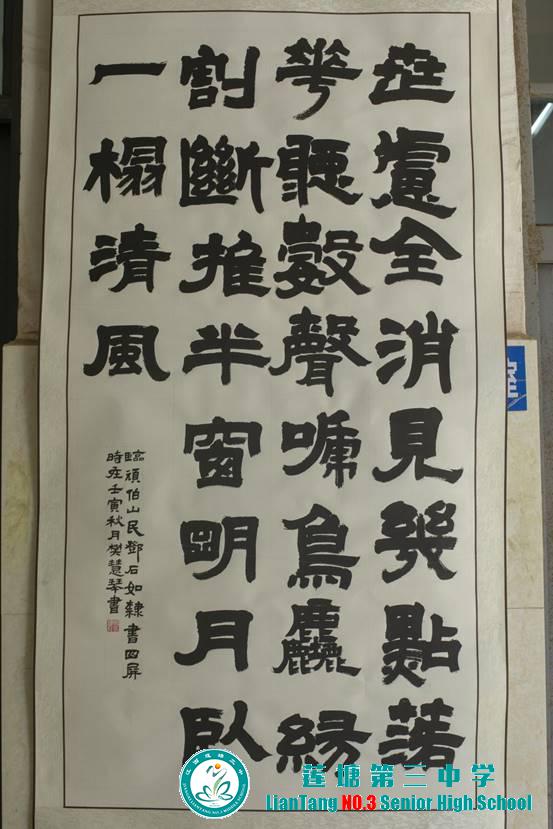 世慮全消見幾點落
華聽數聲啼鳥麤緣
割斷推半窗明月臥
一榻清風
臨頑伯山民鄧石如隸書四屏
時在壬寅秋月樊慧琴書
莲塘第三中学
LianTang NO.3 Senior High School